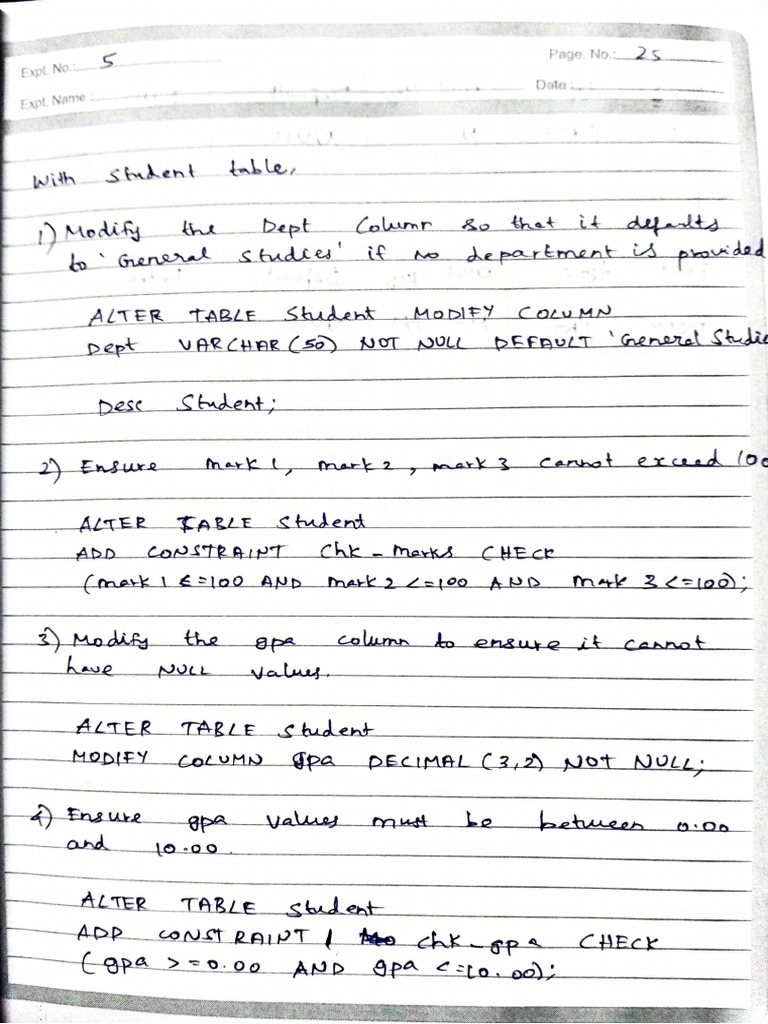 Expt. No.: 5
Page. No.: 25
Date :
Expt. Name :
With Student table,
1) Modify the Dept Column so that it defaults
to 'General Studies' if no department is provided
ALTER TABLE Student MODIFY COLUMN
Dept VARCHAR(50) NOT NULL DEFAULT 'General Studie
Desc Student;
2) Ensure mark1, mark2, mark3 cannot exceed 100
ALTER TABLE Student
ADD CONSTRAINT Chk_marks CHECK
(mark1 <=100 AND mark2 <=100 AND mark 3<=100);
3) Modify the gpa column to ensure it cannot
have NULL values.
ALTER TABLE Student
MODIFY COLUMN gpa DECIMAL (3,2) NOT NULL;
4) Ensure gpa values must be between 0.00
and 10.00.
ALTER TABLE Student
ADD CONSTRAINT chk_gpa CHECK
(gpa >=0.00 AND gpa <=10.00);